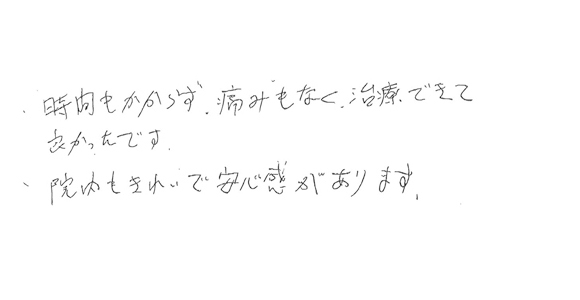 、時間もかからず、痛みもなく、治療できて
良かったです。
、院内もきれいで安心感があります。